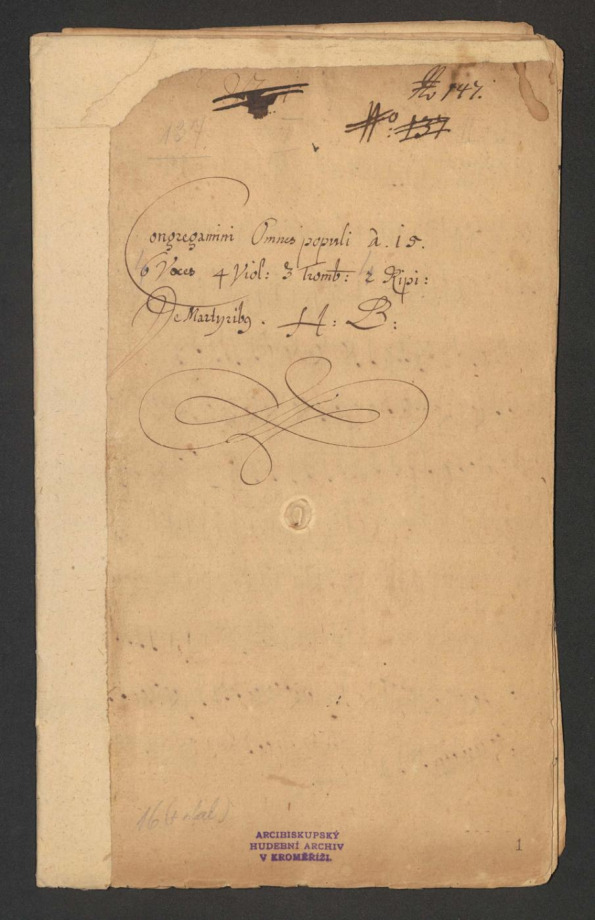 No 147.
No: 137
137
Congregamini Omnes populi à. 15.
6 Voces 4 Viol: 3 Tromb: 2 Ripi:
De Martyribq. H: B:
ARCIBISKUPSKÝ
HUDEBNÍ ARCHIV
V KROMĚŘÍŽI.
1